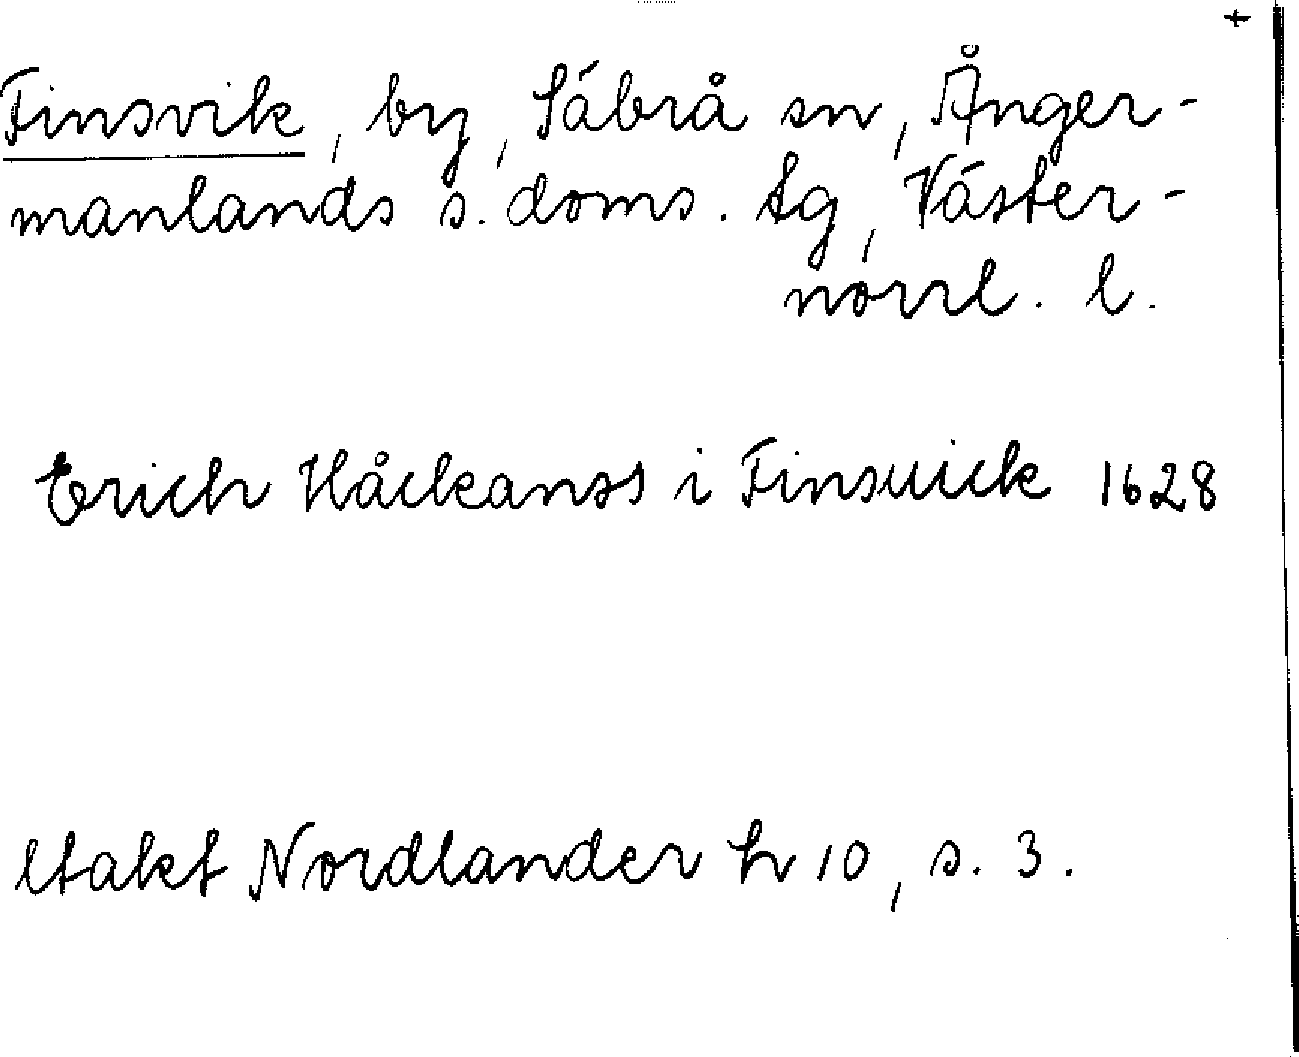 +
Finsvik, by, Säbrå sn, Ånger-
manlands s. doms. tg, Väster-
norrl. l.
Erich Håckanss i Finsuick 1628
Utakt Nordlander h 10, s. 3.